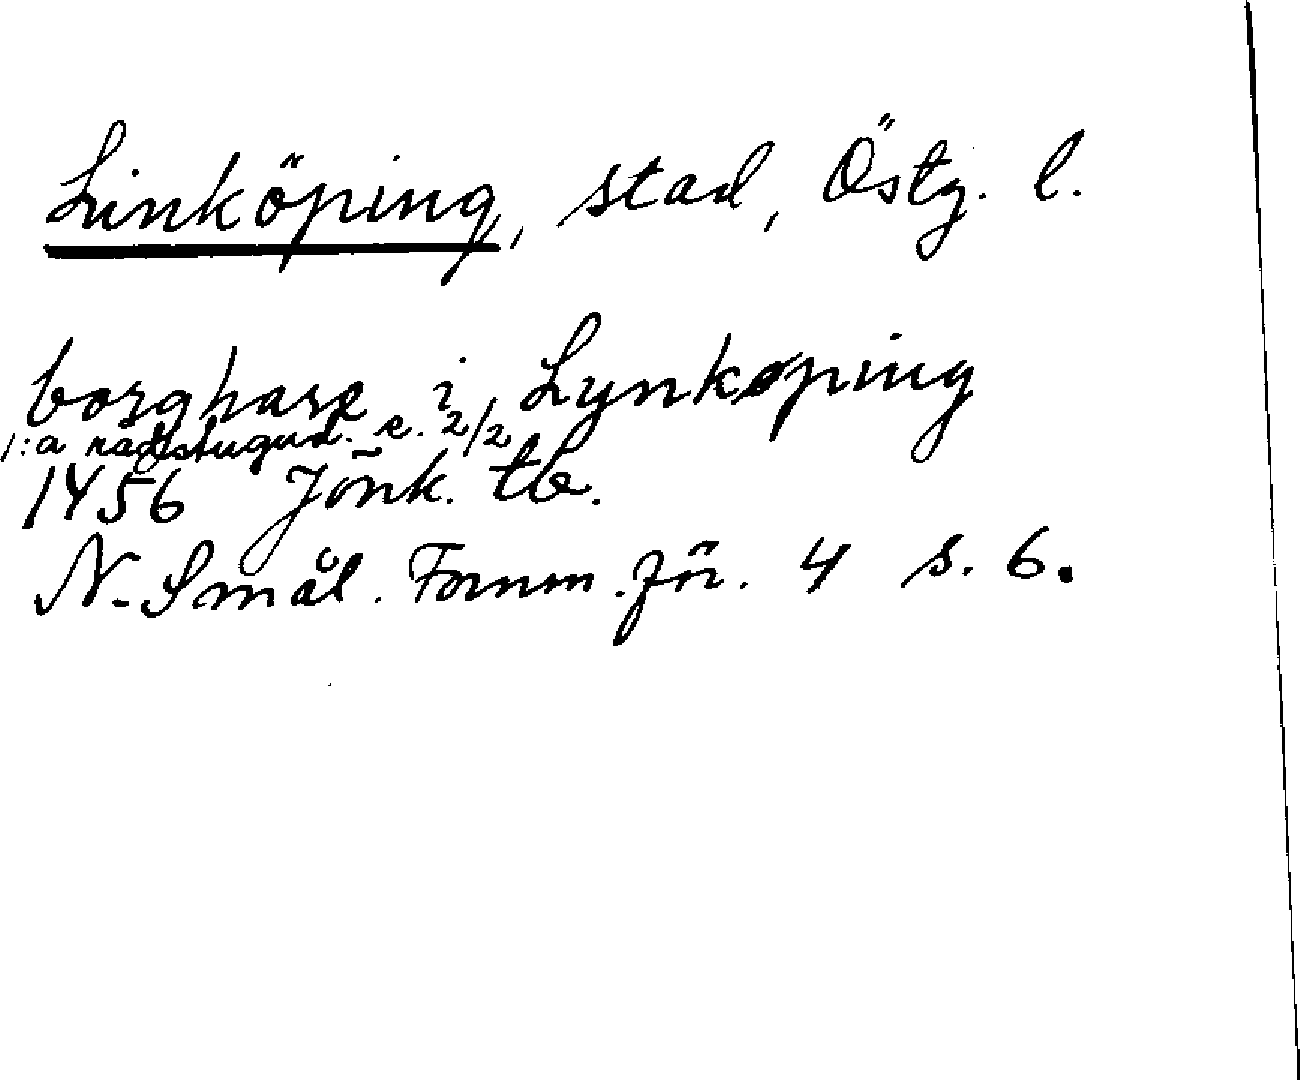 Linköping, stad, Östg. l.
borghare i Lynkøping
1:a rådstugud. e. 2/2
1456 Jönk. tb.
N. Smål. Fornm. för. 4 s. 6.